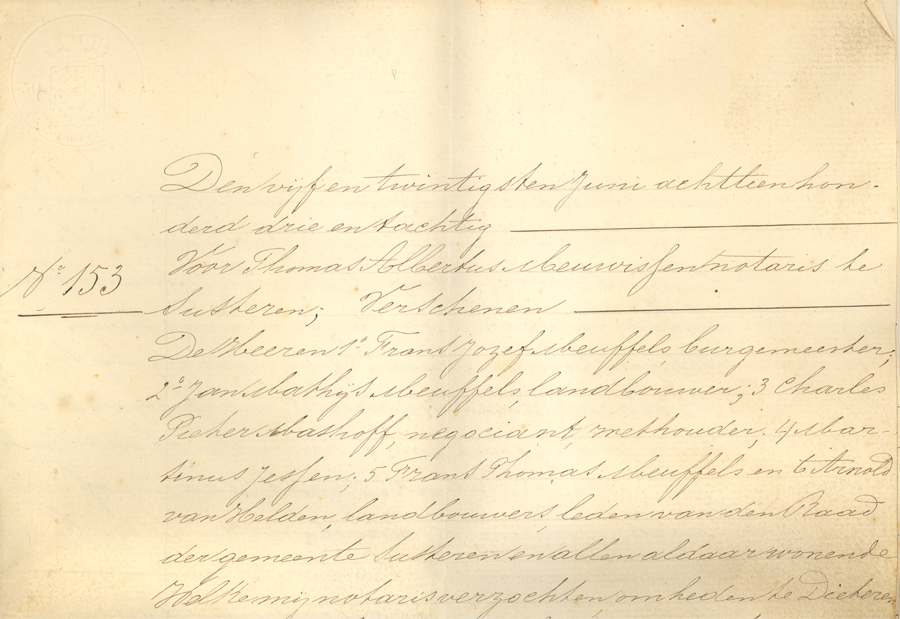 Den vijf en twintigsten Juni achttien hon-
derd drie en tachtig
No 153
Voor Thomas Albertus Meuwissen notaris te
Susteren; Verschenen
De Heeren 1o Frans Jozef Meuffels, burgemeester;
2o Jan Mathijs Meuffels, landbouwer; 3 Charles
Pieter Mashoff, negociant, wethouder; 4 Mar-
tinus Jessen; 5 Frans Thomas Meuffels en 6 Arnold
van Helden, landbouwers, leden van den Raad
der gemeente Susteren en allen aldaar wonende
Welke mij notaris verzochten om heden te Dieteren